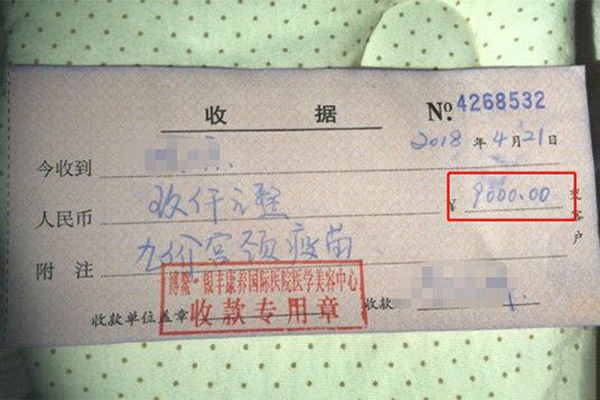 收据 No. 4268532
2018年4月21日
今收到
人民币 玖仟元整 ¥ 9000.00
附注 九价宫颈疫苗
交客户
博鳌·银丰康养国际医院医学美容中心
收款专用章
收款单位盖章 收款